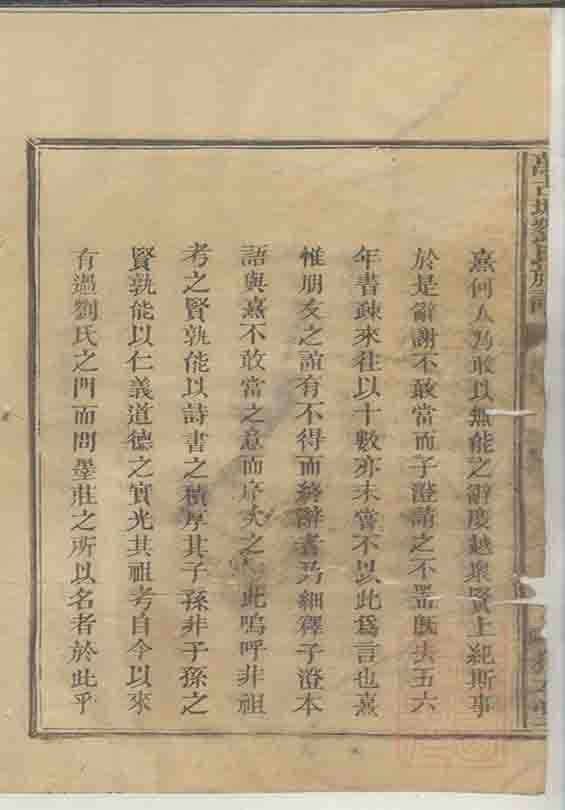 劉氏族
熹何人焉敢以無能之辭度越衆賢上紀斯事
於是辭謝不敢當而子澄請之不置旣去五六
年書疎來往以十數亦未嘗不以此爲言也熹
惟朋友之誼有不得而終辭者乃細釋子澄本
語與熹不敢當之意而序次之 此嗚呼非祖
考之賢孰能以詩書之積厚其子孫非子孫之
賢孰能以仁義道德之實光其祖考自今以來
有過劉氏之門而問墨莊之所以名者於此乎